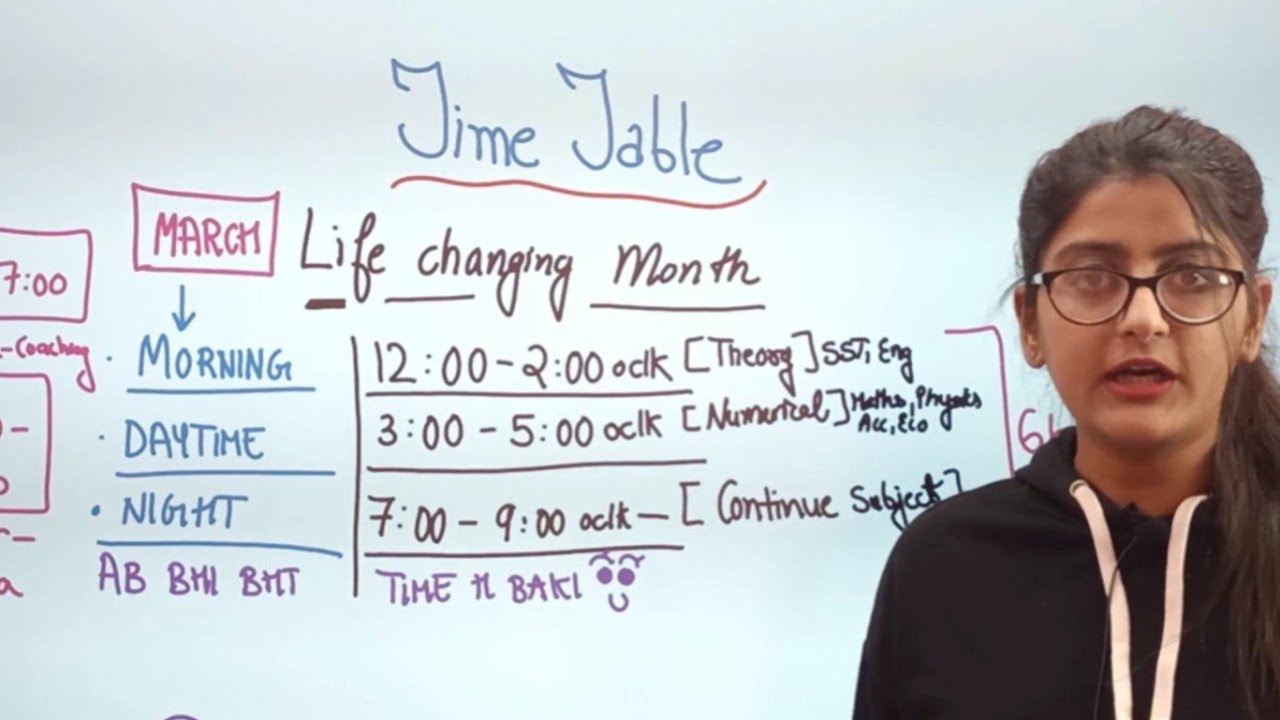 Time Table
MARCH Life changing Month
7:00
-Coaching
• MORNING 12:00-2:00 oclk [Theory] SST, Eng
• DAYTIME 3:00-5:00 oclk [Numerical] Maths, Physics
Acc, Eco
• NIGHT 7:00-9:00 oclk- [Continue Subject]
AB BHI BHT TIME H BAKI